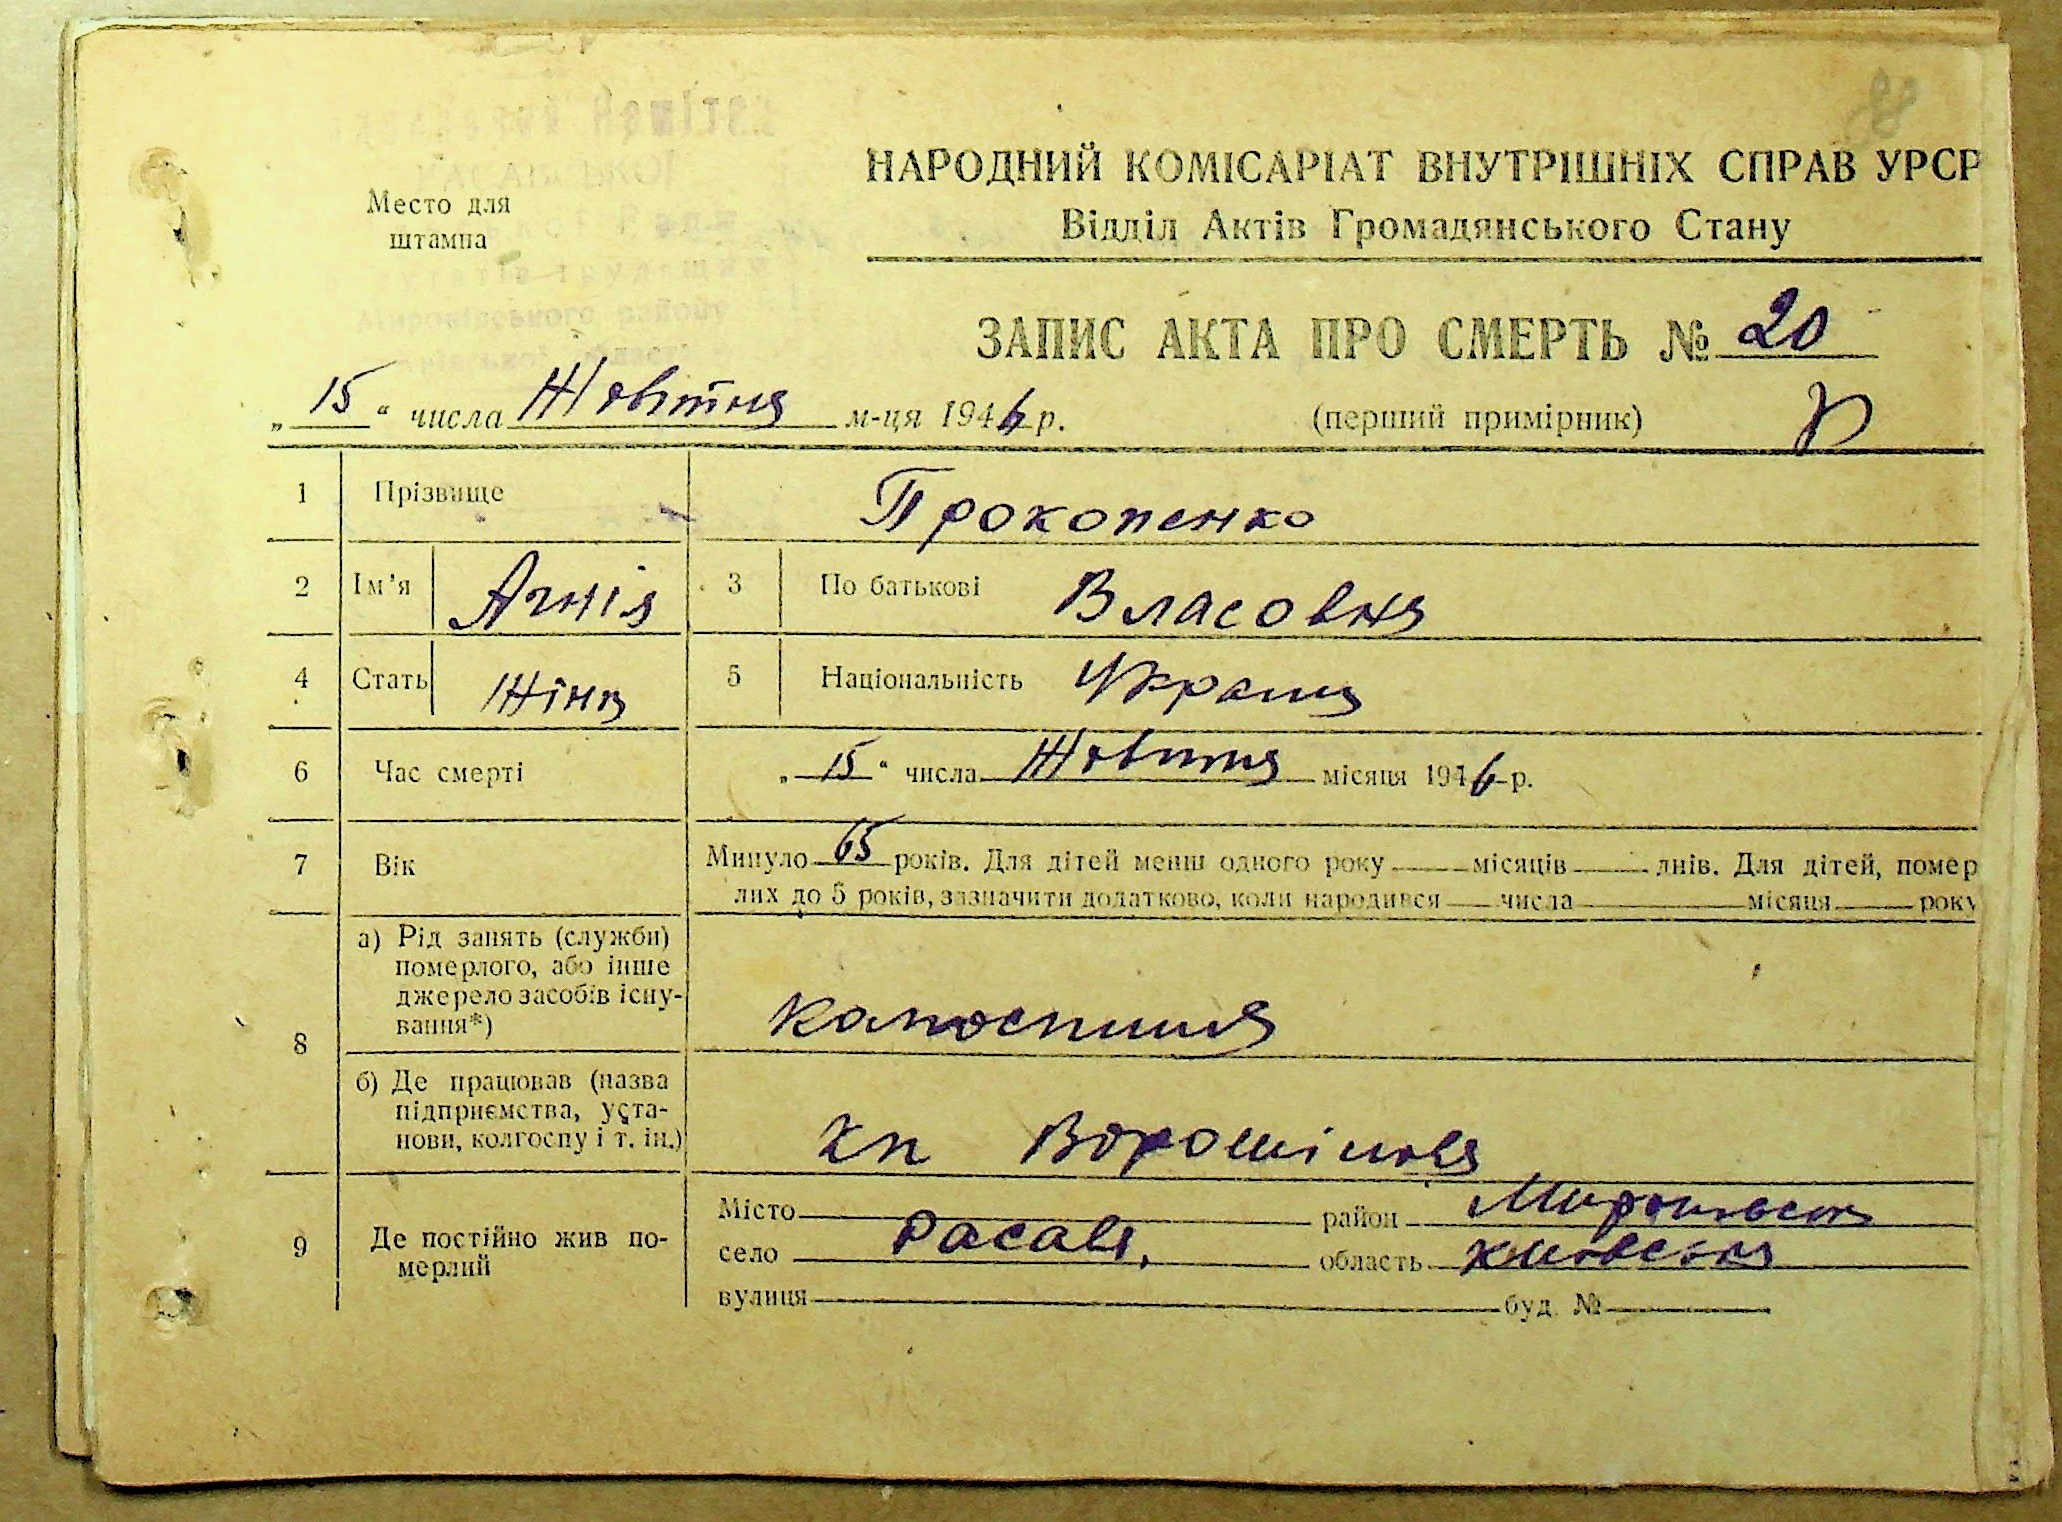 НАРОДНИЙ КОМІСАРІАТ ВНУТРІШНІХ СПРАВ УРСР
Место для
штампа
Відділ Актів Громадянського Стану
ЗАПИС АКТА ПРО СМЕРТЬ № 20
„ 15 “ числа Жовтня м-ця 1946 р. (перший примірник)
1 Прізвище Прокопенко
2 Ім'я Агнія 3 По батькові Власовна
4 Стать Жіна 5 Національність
6 Час смерті „ 15 “ числа Жовтня місяця 1946 р.
7 Вік Минуло 65 років. Для дітей менш одного року місяців днів. Для дітей, помер
лих до 5 років, зазначити додатково, коли народився числа місяця року
8 а) Рід занять (служби)
померлого, або інше
джерело засобів існу-
вання*)
б) Де працював (назва
підприємства, уста-
нови, колгоспу і т. ін.)
Ворошілова
9 Де постійно жив по-
мерлий
Місто район
село Расава, область
вулиця буд. №